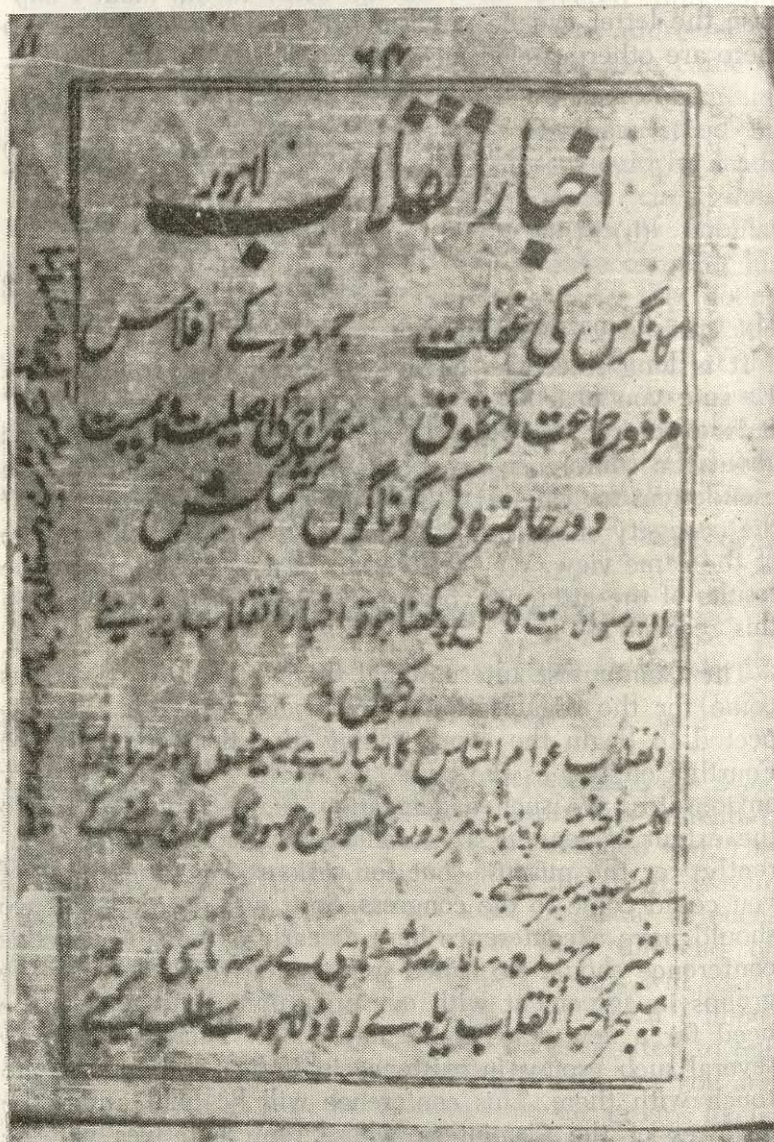 ۶۴
اخبار انقلاب لاہور
کانگرس کی غفلت جمہور کے افلاس
مزدور جماعت کے حقوق سوراج کی اصلیت و اہمیت
دور حاضرہ کی گوناگوں کشمکش
ان سوالات کا حل دیکھنا ہو تو اخبار انقلاب پڑھیئے
کیوں؟
انقلاب عوام الناس کا اخبار ہے سیٹھوں اور سرمایہ داروں
کا سوراج نہیں چاہتا۔ مزدورونکا سوراج جمہور کا سوراج لینے کے
لئے سینہ سپر ہے۔
شرح چندہ سالانہ ششماہی سہ ماہی
مینیجر اخبار انقلاب ریلوے روڈ لاہور سے طلب کیجئے